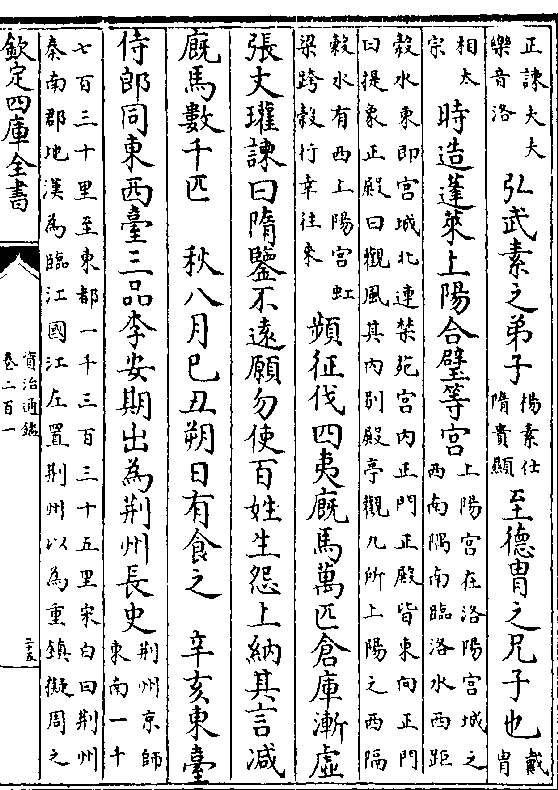 正諫大夫
樂音洛
弘武素之弟子
楊素仕
隋貴顯
至德胄之兄子也
戴
胄
相太
宗
時造蓬萊上陽合璧等宮
上陽宮在洛陽宮城之
西南隅南臨洛水西距
穀水東即宮城北連禁苑宮内正門正殿皆東向正門
曰提象正殿曰觀風其内别殿亭觀九所上陽之西隔
穀水有西上陽宮虹
梁跨穀行幸往來
頻征伐四夷廐馬萬匹倉庫漸虛
張文瓘諫曰隋鑒不遠願勿使百姓生怨上納其言減
廐馬數千匹　秋八月己丑朔日有食之　辛亥東臺
侍郎同東西臺三品李安期出為荆州長史
荆州京師
東南一千
七百三十里至東都一千三百三十五里宋白曰荆州
秦南郡地漢為臨江國江左置荆州以為重鎮擬周之
欽定四庫全書
資治通鑑
卷二百一